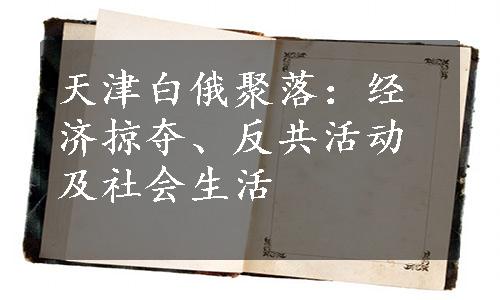 天津白俄聚落：经
济掠夺、反共活动
及社会生活